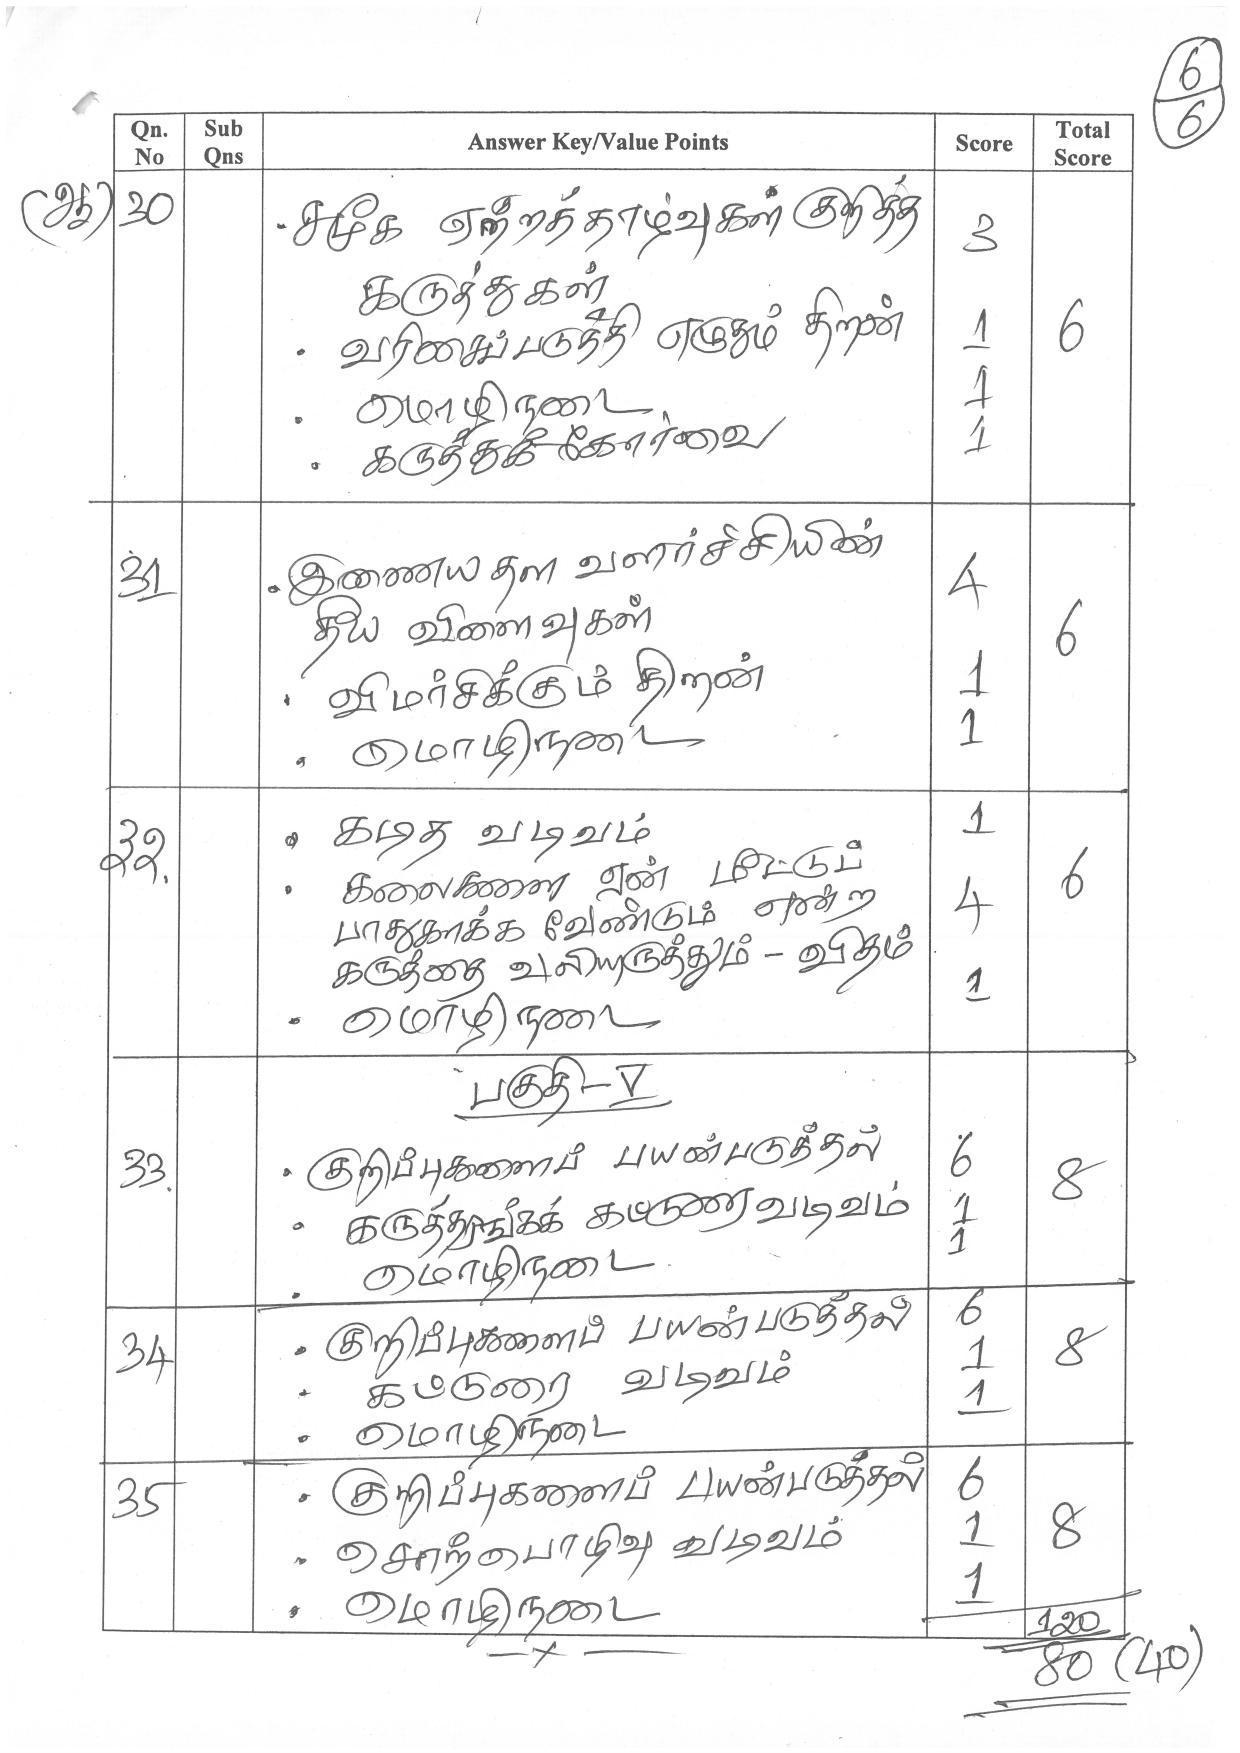 6
6
Qn. No Sub Qns Answer Key/Value Points Score Total Score
(ஆ) 30 · சமூக ஏற்றத்தாழ்வுகள் குறித்த 3
கருத்துகள்
· வரிசைப்படுத்தி எழுதும் திறன் 1 6
· மொழிநடை 1
· கருத்துக்கோர்வை 1
31 · இணையதள வளர்ச்சியின் 4
தீய விளைவுகள் 6
· விமர்சிக்கும் திறன் 1
· மொழிநடை 1
32. · கடித வடிவம் 1
· கலைகளை ஏன் மீட்டுப் 6
பாதுகாக்க வேண்டும் என்ற 4
கருத்தை வலியுறுத்தும் – விதம்
· மொழிநடை 1
பகுதி – V
33. · குறிப்புகளைப் பயன்படுத்தல் 6 8
· கருத்தரங்கக் கட்டுரை வடிவம் 1
· மொழிநடை 1
34 · குறிப்புகளைப் பயன்படுத்தல் 6 8
· கட்டுரை வடிவம் 1
· மொழிநடை 1
35 · குறிப்புகளைப் பயன்படுத்தல் 6
· சொற்பொழிவு வடிவம் 1 8
· மொழிநடை 1
120
—x—
80 (40)